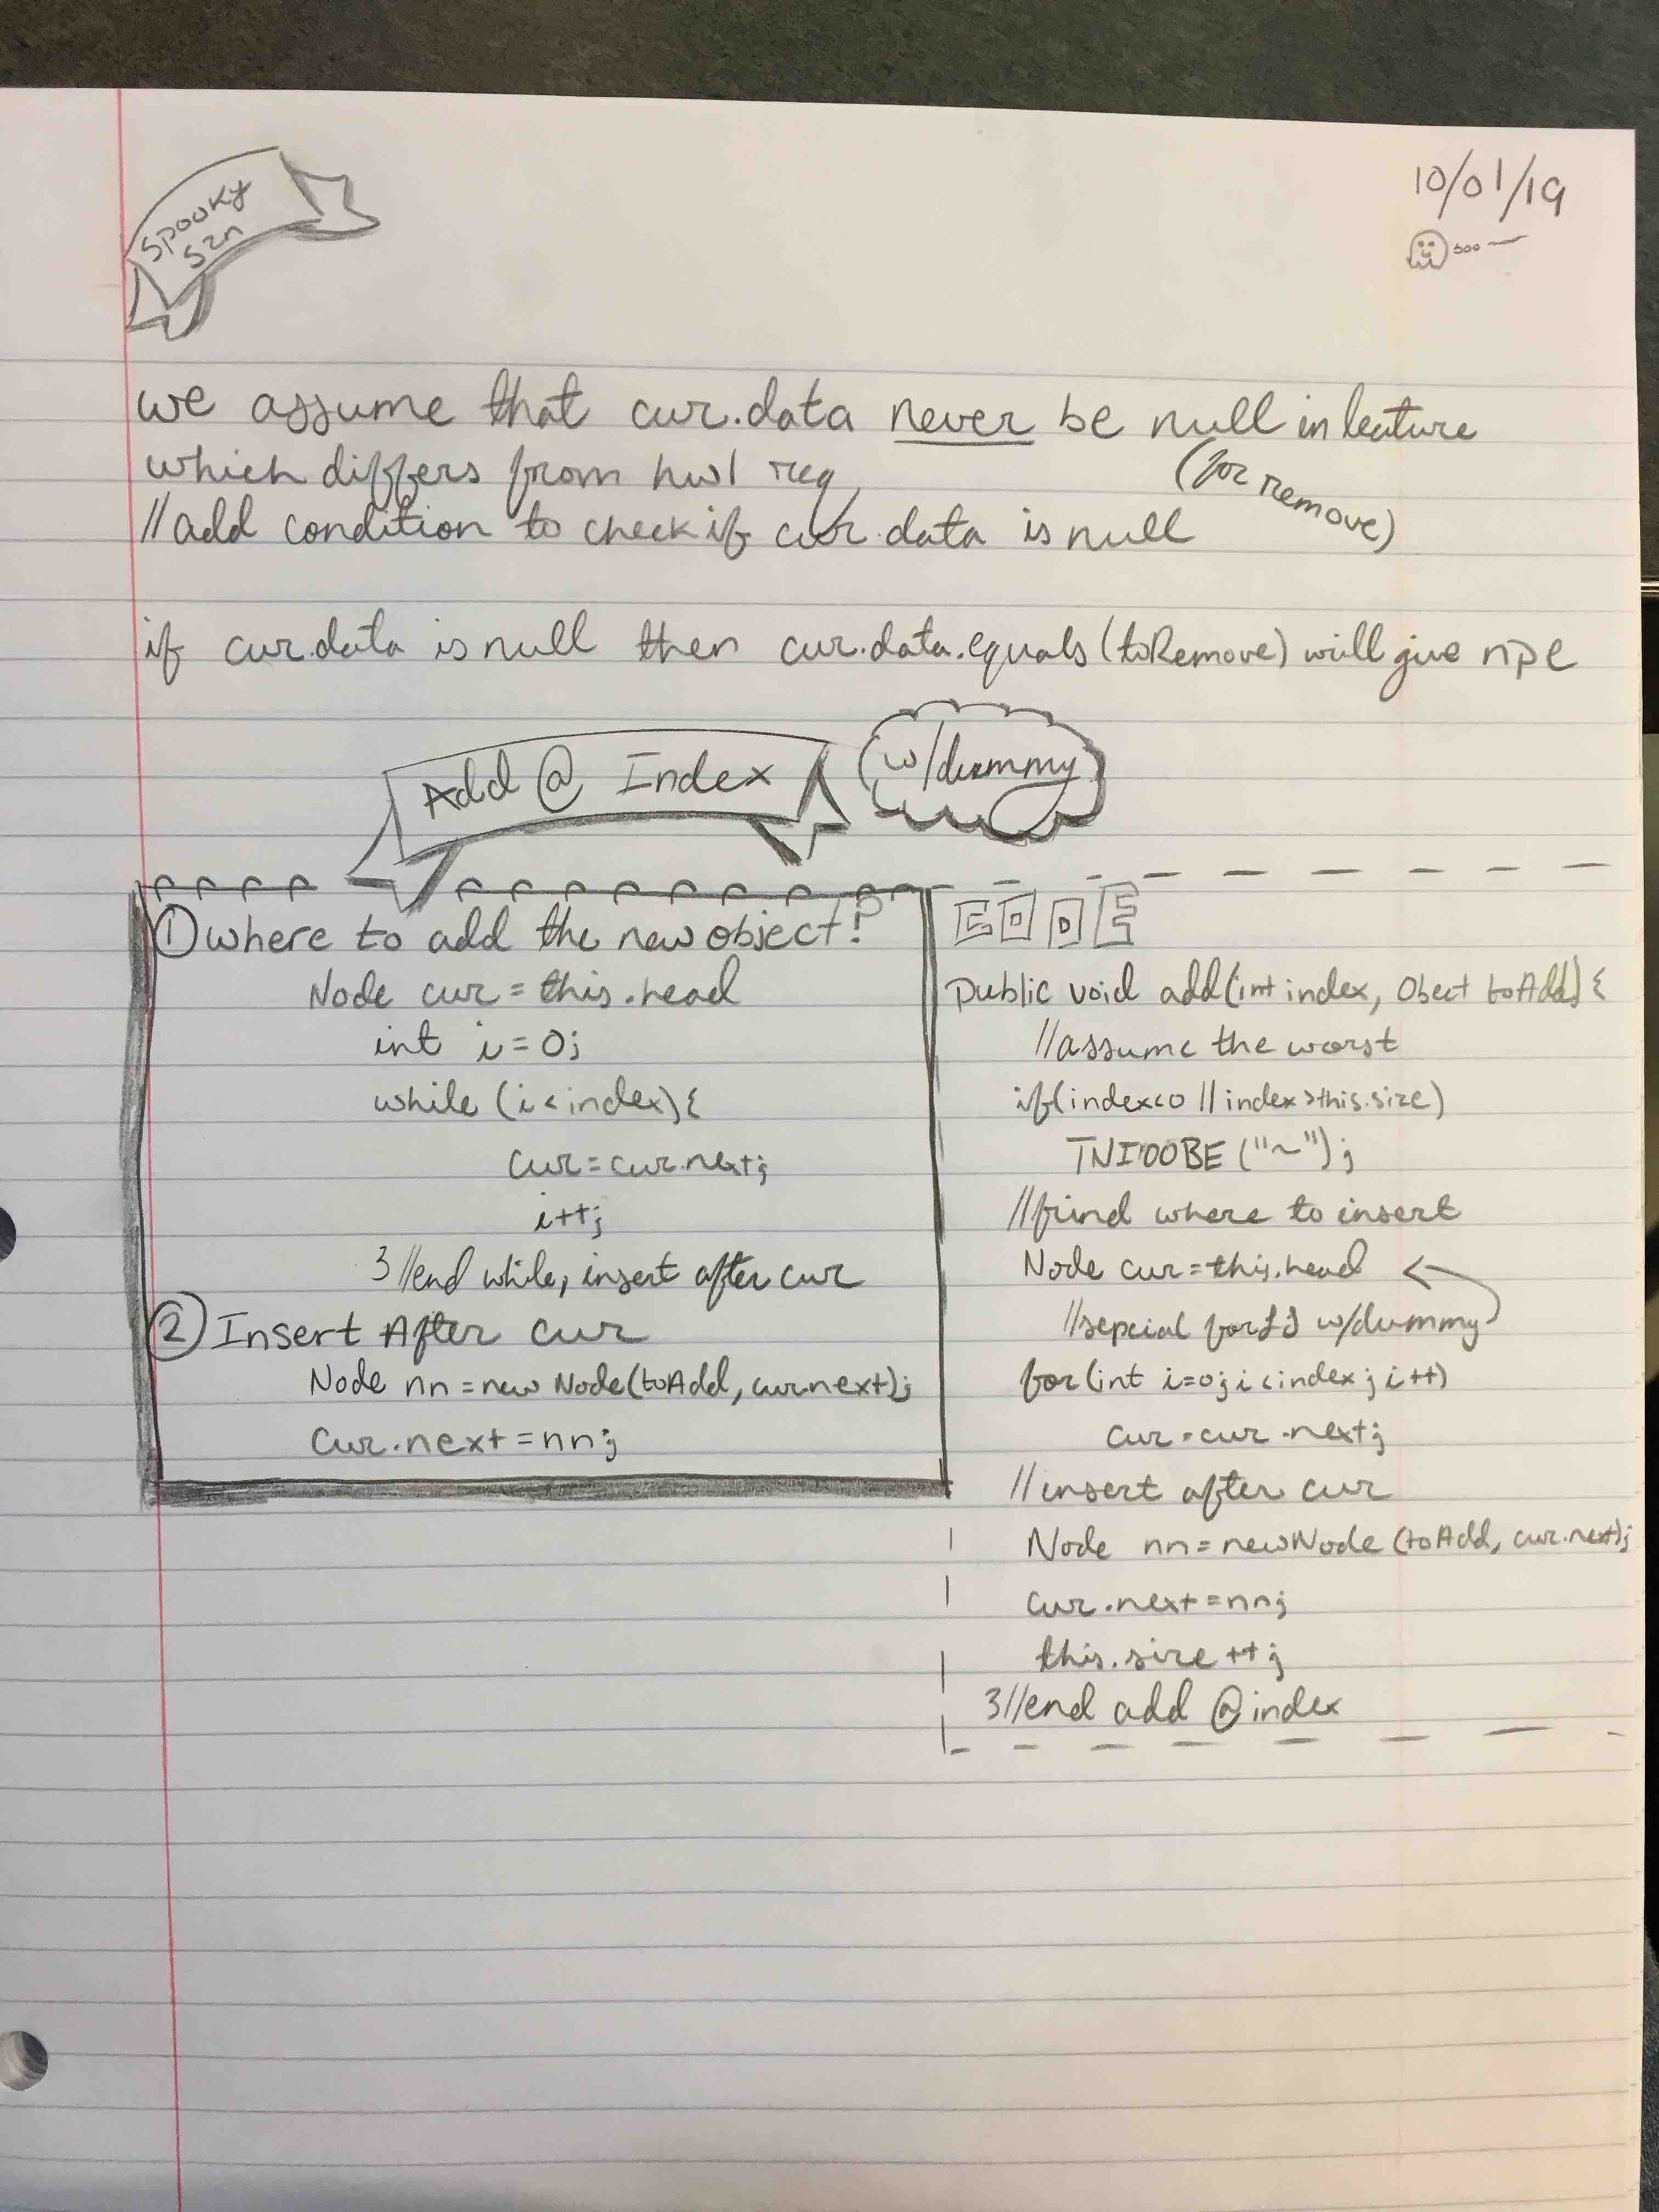 Spooky
Szn
10/01/19
boo
we assume that cur.data never be null in lecture
which differs from hw1 req
(for remove)
//add condition to check if cur.data is null
if cur.data is null then cur.data.equals(toRemove) will give npe
Add @ Index
w/dummy
① where to add the new object?
Node cur = this.head
int i = 0;
while (i < index){
cur = cur.next;
i++;
} //end while, insert after cur
② Insert After cur
Node nn = new Node(toAdd, cur.next);
cur.next = nn;
CODE
public void add(int index, Obect toAdd){
//assume the worst
if(index<0 || index>this.size)
TNIOOBE ("~");
//find where to insert
Node cur = this.head
//sepcial for LL w/dummy
for(int i=0; i<index; i++)
cur = cur.next;
//insert after cur
Node nn = new Node (toAdd, cur.next);
cur.next = nn;
this.size ++;
} //end add @ index